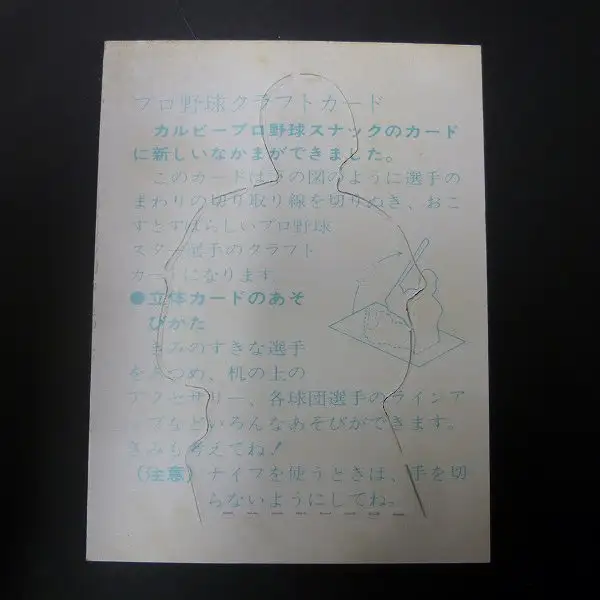 プロ野球クラフトカード
カルビープロ野球スナックのカード
に新しいなかまができました。
このカードは下の図のように選手の
まわりの切り取り線を切りぬき、おこ
すとすばらしいプロ野球
スター選手のクラフト
カードになります
●立体カードのあそ
びかた
きみのすきな選手
をあつめ、机の上の
アクセサリー、各球団選手のラインア
ップなどいろんなあそびができます。
きみも考えてね!
(注意)ナイフを使うときは、手を切
らないようにしてね。